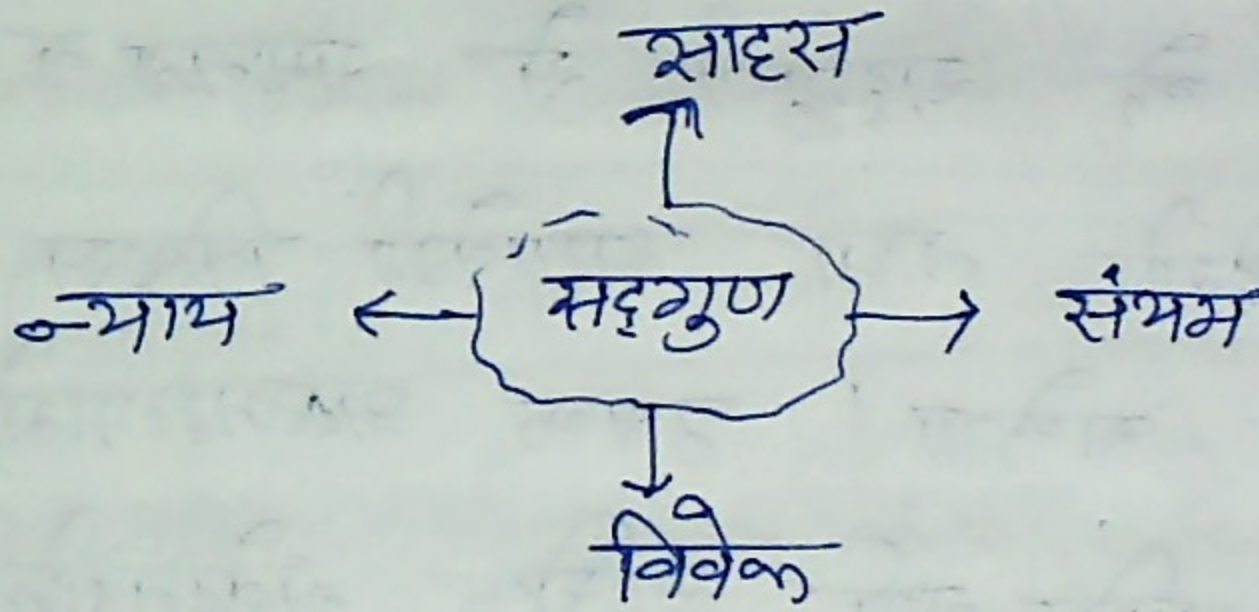 साहस
न्याय ← सद्गुण → संयम
विवेक